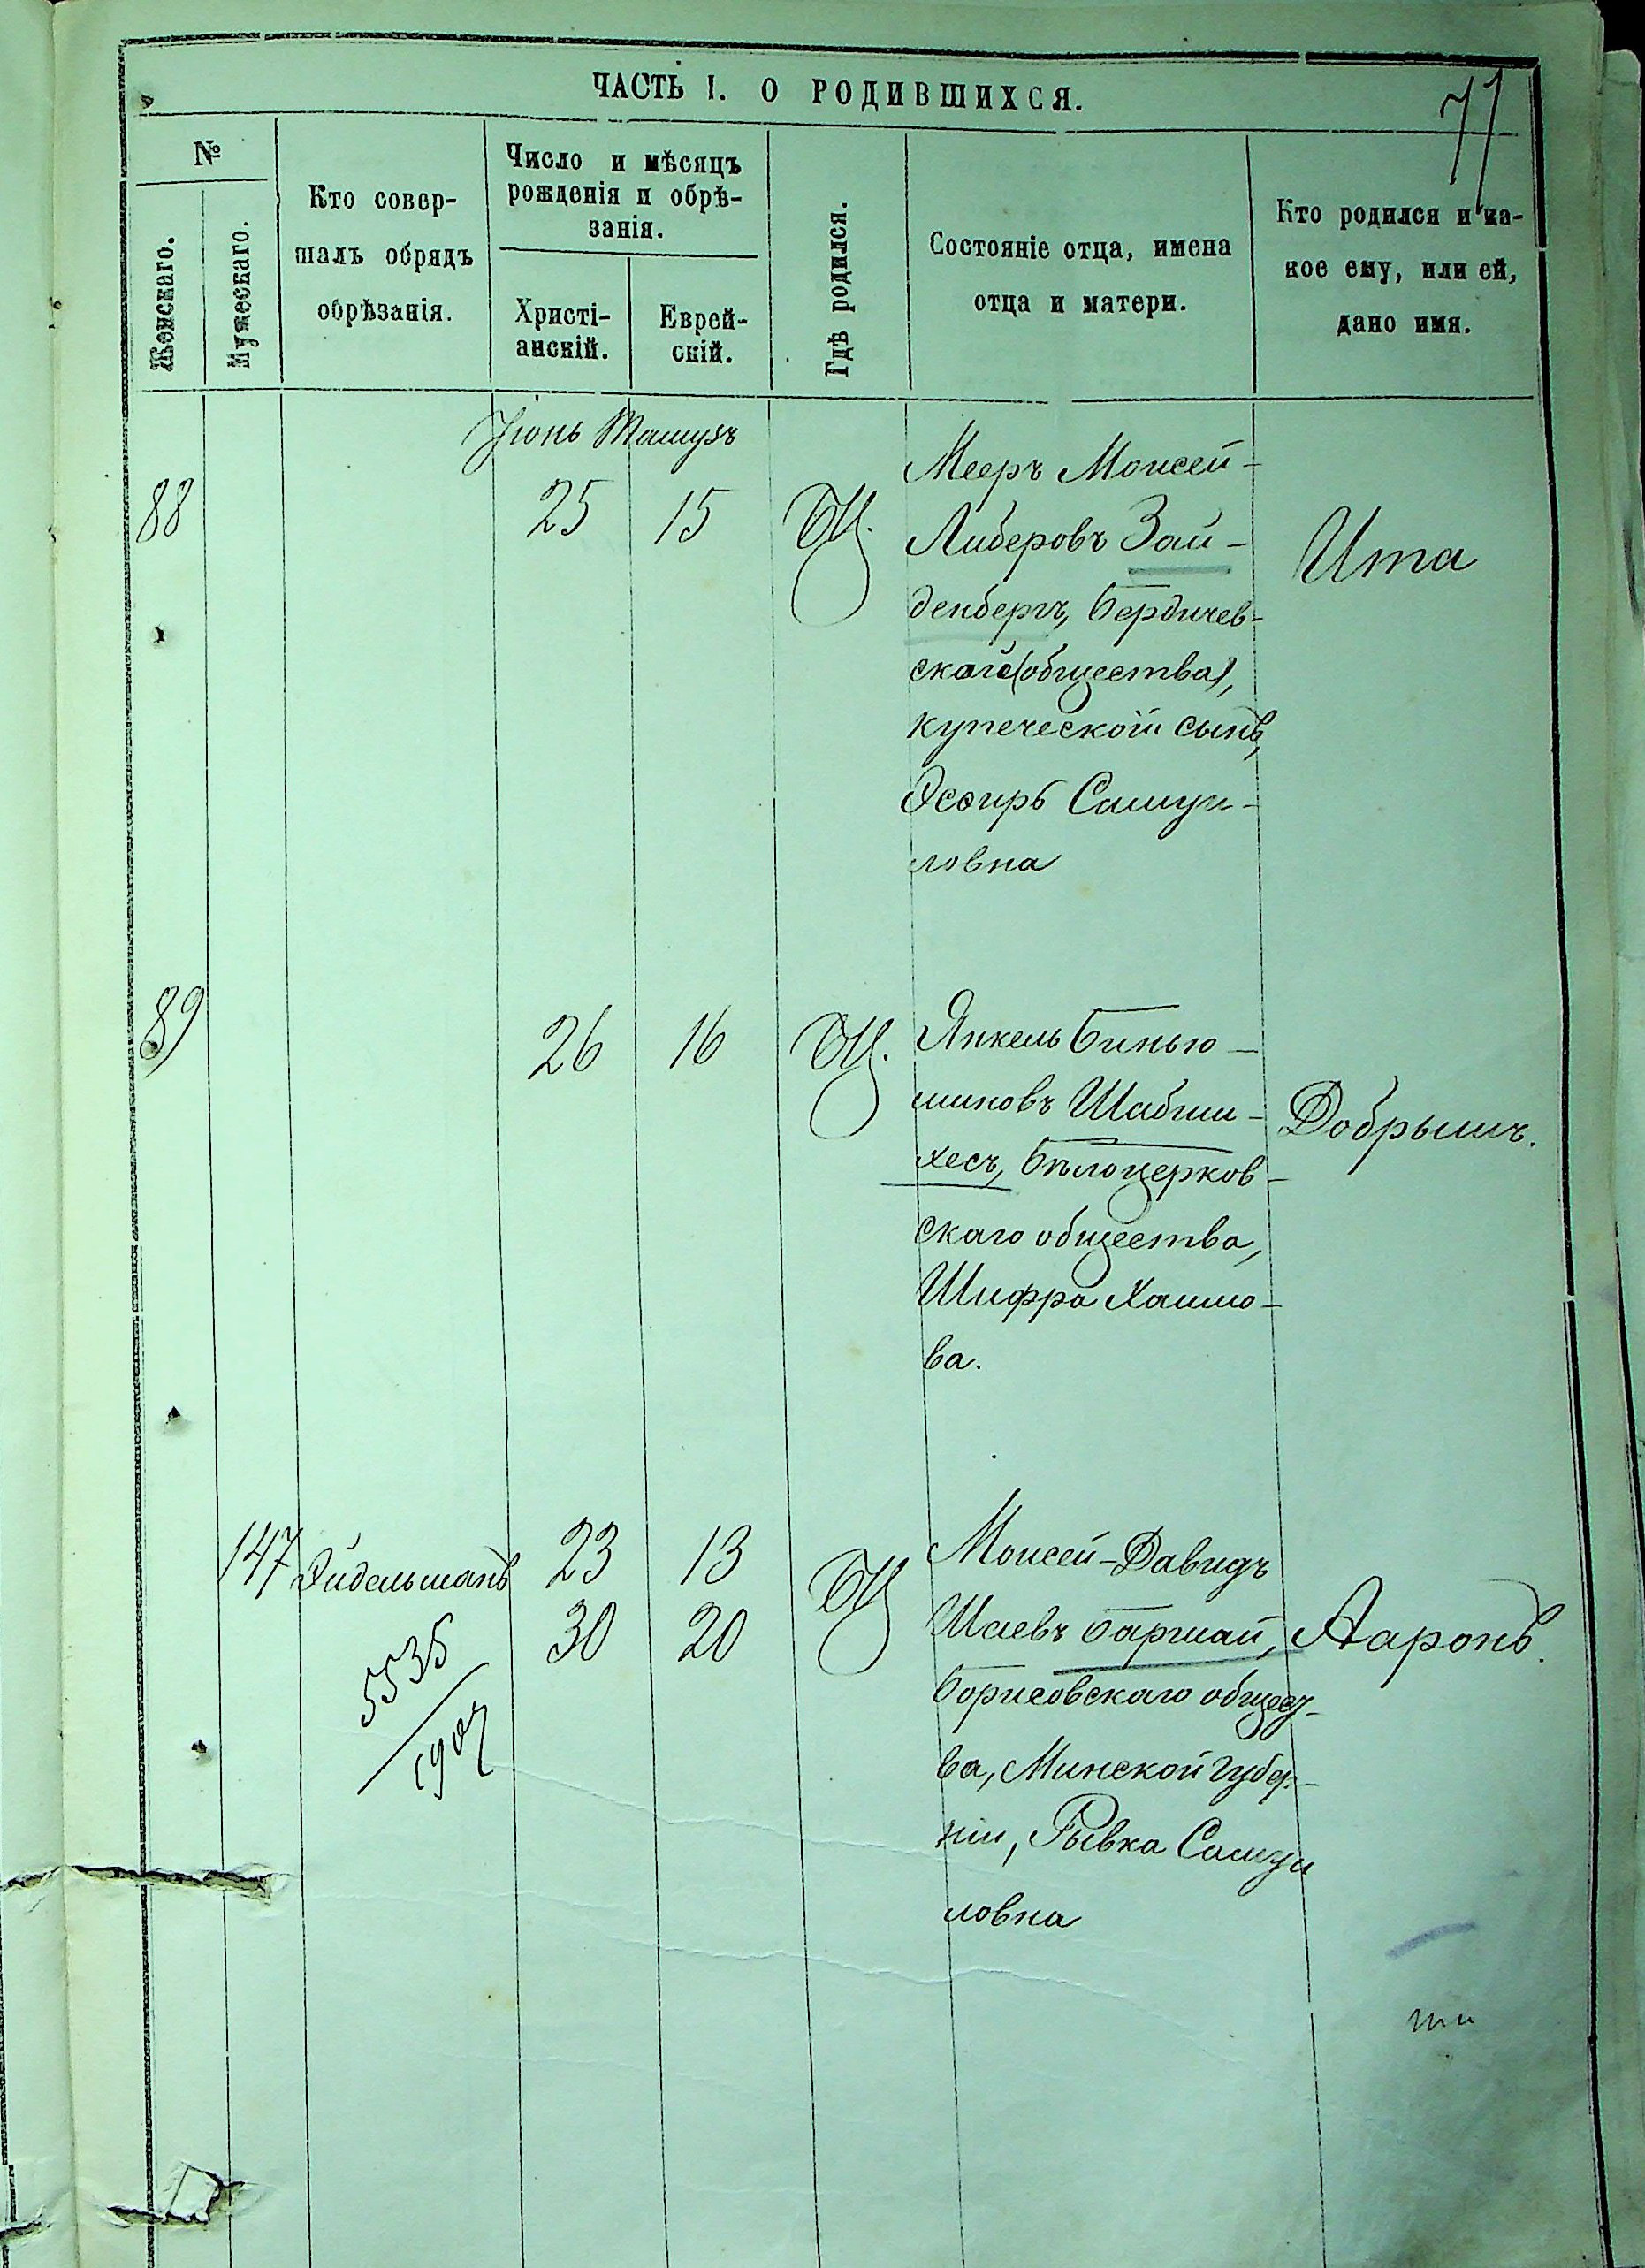 ЧАСТЬ I. О РОДИВШИХСЯ.
77
№
Женскаго.
Мужескаго.
Кто совер-
шалъ обрядъ
обрѣзанія.
Число и мѣсяцъ
рожденія и обрѣ-
занія.
Христі-
анскій.
Еврей-
скій.
Гдѣ родился.
Состояніе отца, имена
отца и матери.
Кто родился и ка-
кое ему, или ей,
дано имя.
Іюнь Тамузъ
88
25
15
Мееръ Моисей-
Либеровъ Зай-
денбергъ, Бердичев-
скаго (общества),
купеческой сынъ,
Эсѳирь Самуи-
ловна
Ита
89
26
16
Янкель Бинью-
миновъ Шабши-
хесъ, Бѣлоцерков-
скаго общества,
Шифра Хаимо-
ва.
Добрышъ.
147
Эйдельманъ
23
13
30
20
5535
1907
Моисей-Давидъ
Шаевъ Баршай,
Борисовскаго общест-
ва, Минской губер-
ніи, Рывка Самуи
ловна
Ааронъ.